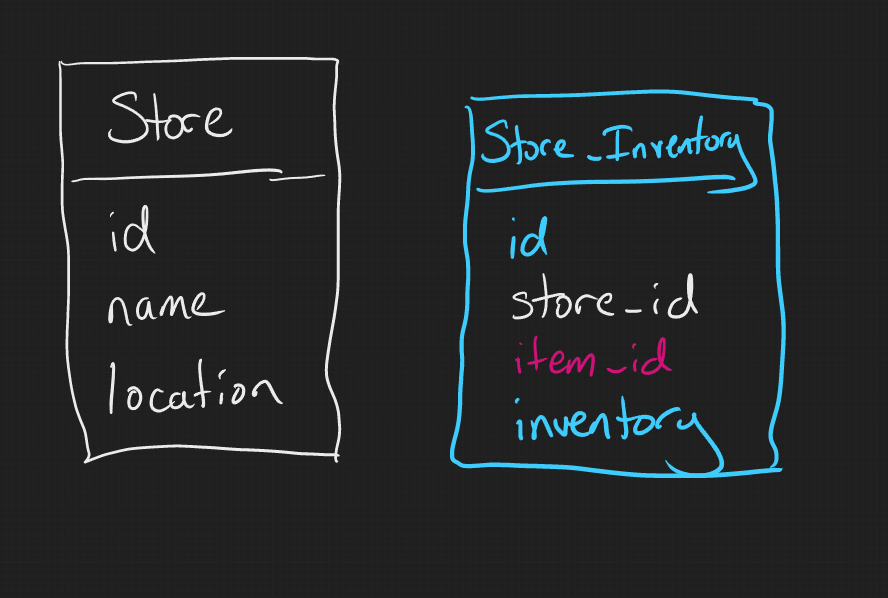 Store
id
name
location
Store_Inventory
id
store_id
item_id
inventory